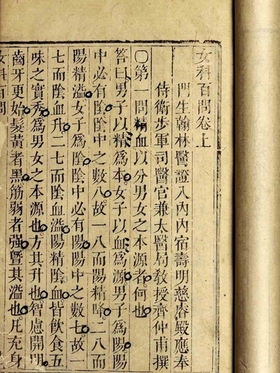 女科百問卷上
門生翰林醫證入內內宿壽明慈睿殿應奉
侍衛步軍司醫官兼太醫局教授齊仲甫撰
〇第一問精血以分男女之本源者何也
答曰男子以精爲本女子以血爲源男子爲陽陽
中必有陰陰中之數八故一八而陽精降二八而
陽精溢女子爲陰陰中必有陽陽中之數七故一
七而陰血升二七而陰血溢陽精陰血皆飲食五
味之實秀爲男女之本源也方其升也智慮開明
齒牙更始髮黃者黑筋弱者強暨其溢也凡充身
女科百問